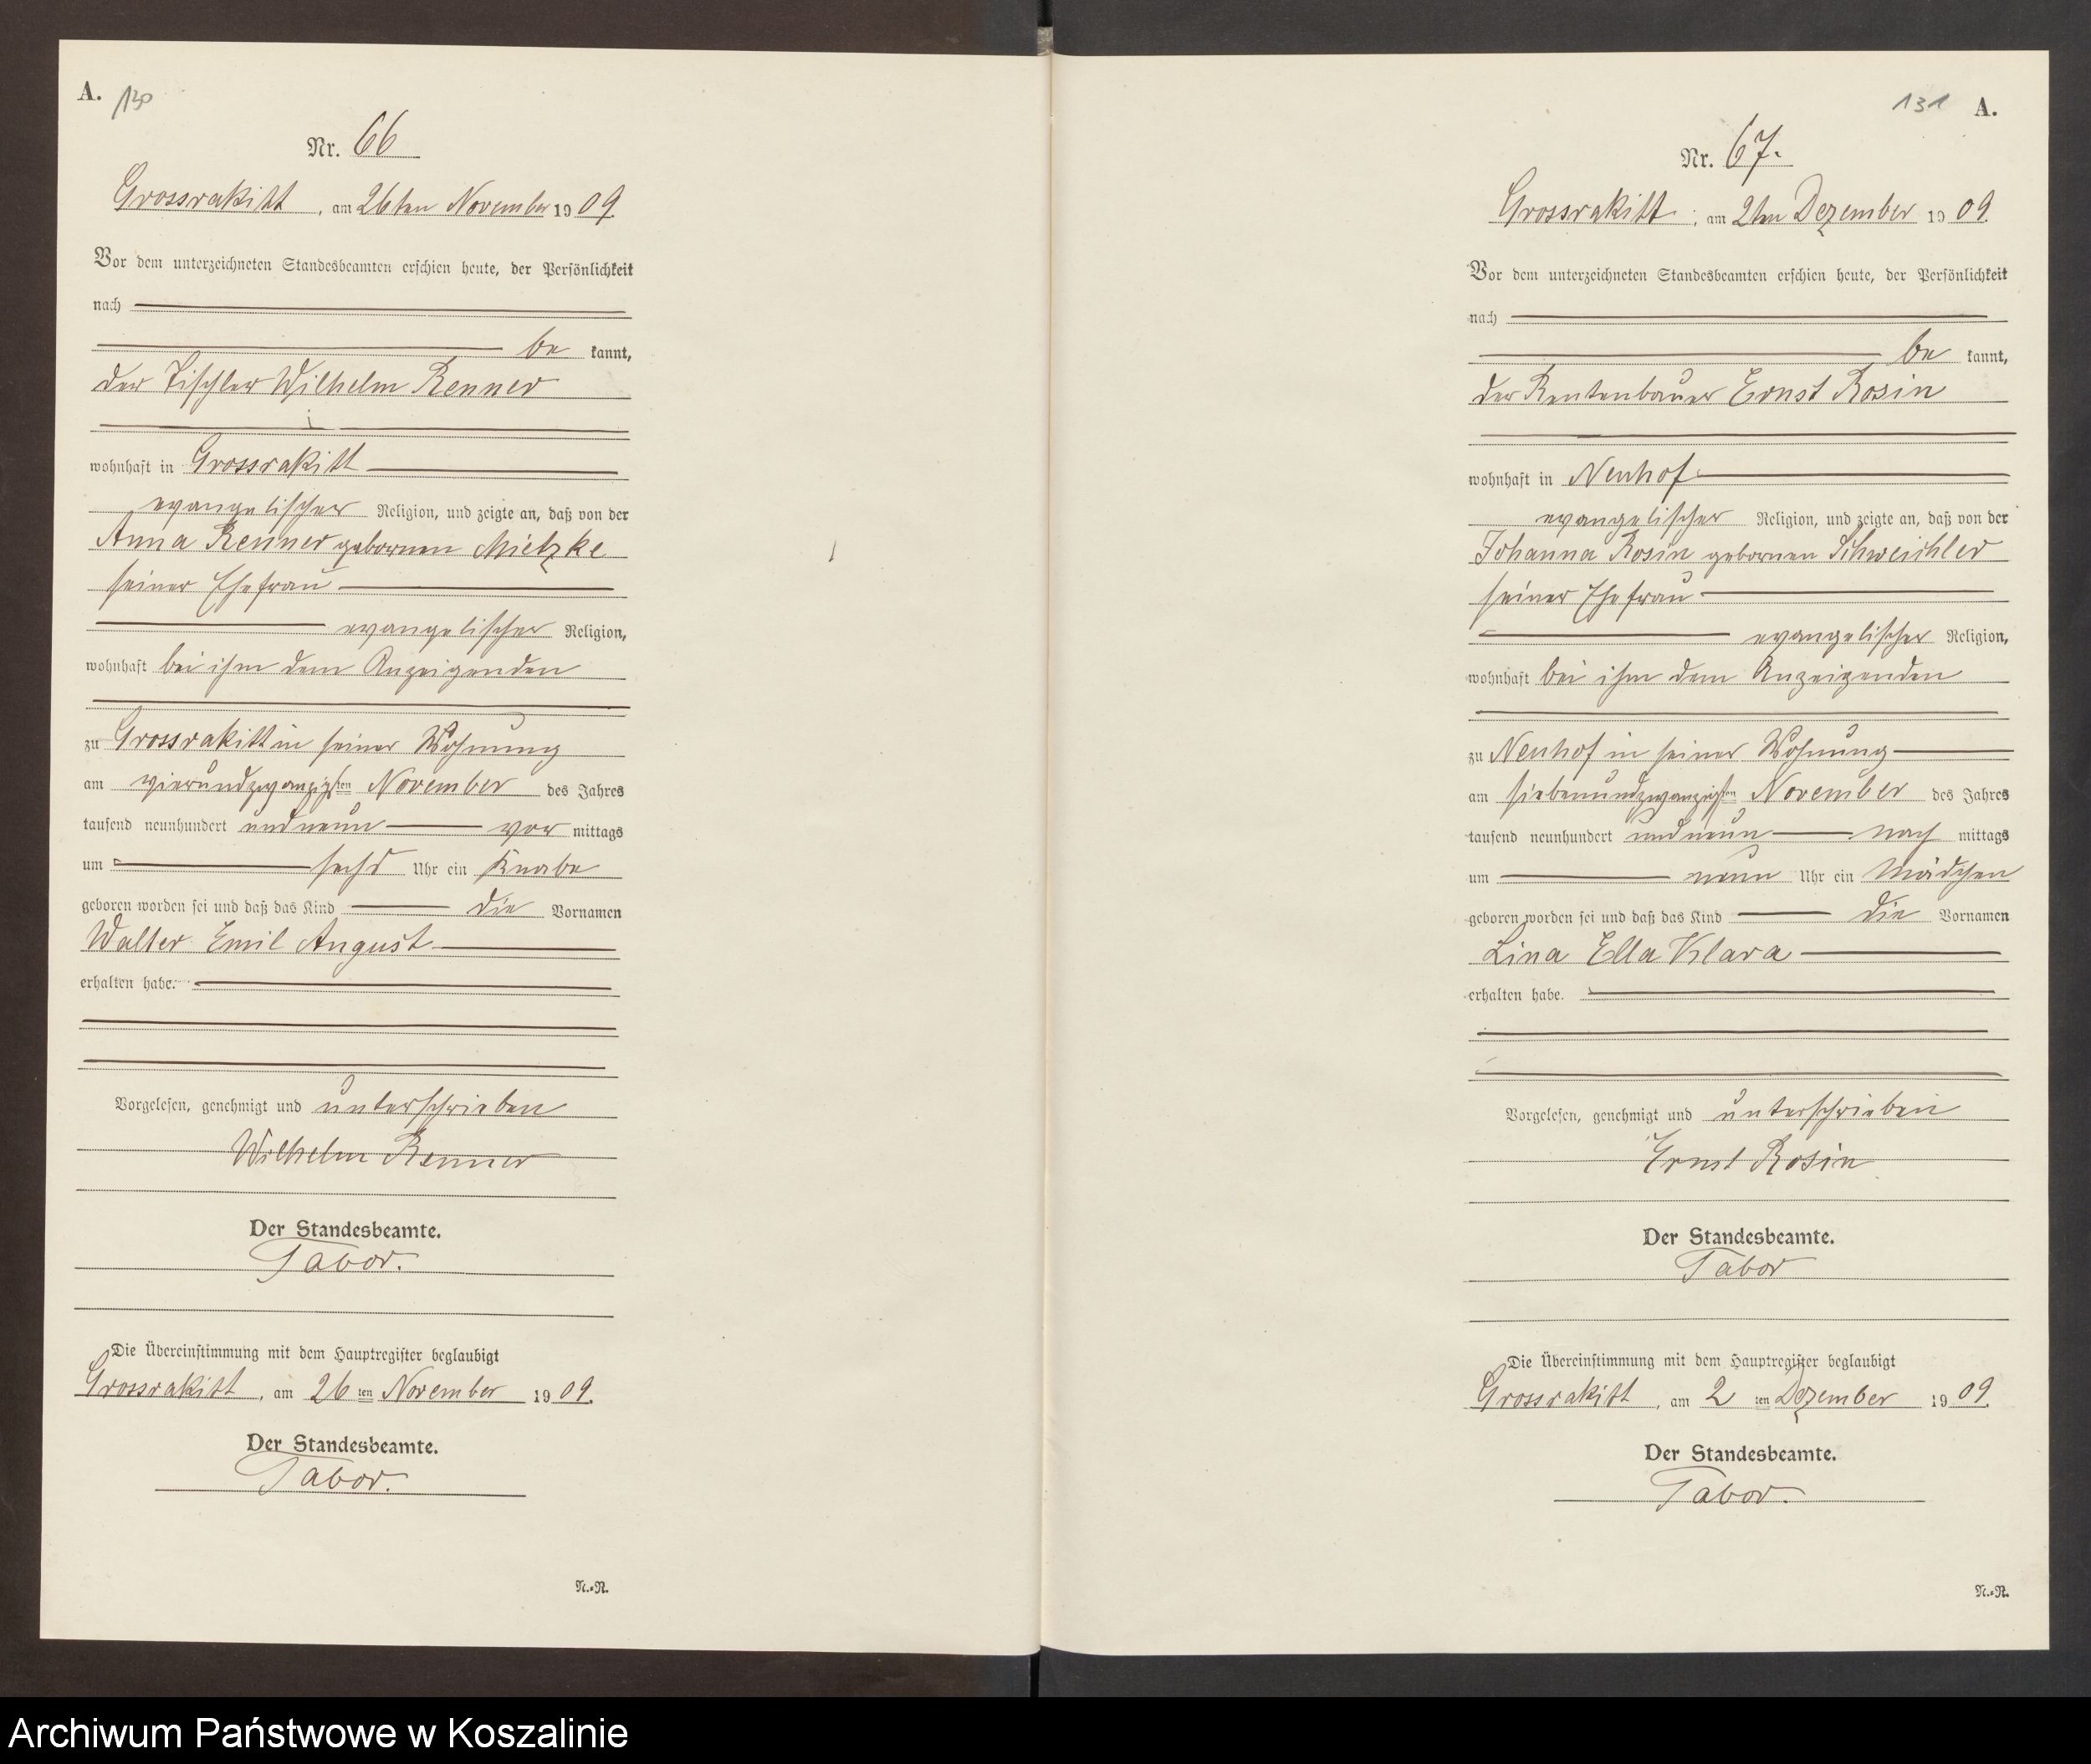 A. 130
Nr. 66
Grossrakitt, am 26ten November 1909.
Vor dem unterzeichneten Standesbeamten erschien heute, der Persönlichkeit
nach
be kannt,
der Tischler Wilhelm Renner
wohnhaft in Grossrakitt
evangelischer Religion, und zeigte an, daß von der
Anna Renner gebornen Mietzke
seiner Ehefrau
evangelischer Religion,
wohnhaft bei ihm dem Anzeigenden
zu Grossrakitt in seiner Wohnung
am vierundzwanzigsten November des Jahres
tausend neunhundert undneun vor mittags
um sechs Uhr ein Knabe
geboren worden sei und daß das Kind die Vornamen
Walter Emil August
erhalten habe.
Vorgelesen, genehmigt und unterschrieben
Wilhelm Renner
Der Standesbeamte.
Tabor.
Die Übereinstimmung mit dem Hauptregister beglaubigt
Grossrakitt, am 26 ten November 1909.
Der Standesbeamte.
Tabor.
N.=N.
131 A.
Nr. 67.
Grossrakitt, am 2ten Dezember 1909.
Vor dem unterzeichneten Standesbeamten erschien heute, der Persönlichkeit
nach
be kannt,
der Rentenbauer Ernst Rosin
wohnhaft in Neuhof
evangelischer Religion, und zeigte an, daß von der
Johanna Rosin gebornen Schweichler
seiner Ehefrau
evangelischer Religion,
wohnhaft bei ihm dem Anzeigenden
zu Neuhof in seiner Wohnung
am siebenundzwanzigsten November des Jahres
tausend neunhundert undneun nach mittags
um neun Uhr ein Mädchen
geboren worden sei und daß das Kind die Vornamen
Lina Ella Klara
erhalten habe.
Vorgelesen, genehmigt und unterschrieben
Ernst Rosin
Der Standesbeamte.
Tabor
Die Übereinstimmung mit dem Hauptregister beglaubigt
Grossrakitt, am 2 ten Dezember 1909.
Der Standesbeamte.
Tabor.
N.=N.
Archiwum Państwowe w Koszalinie